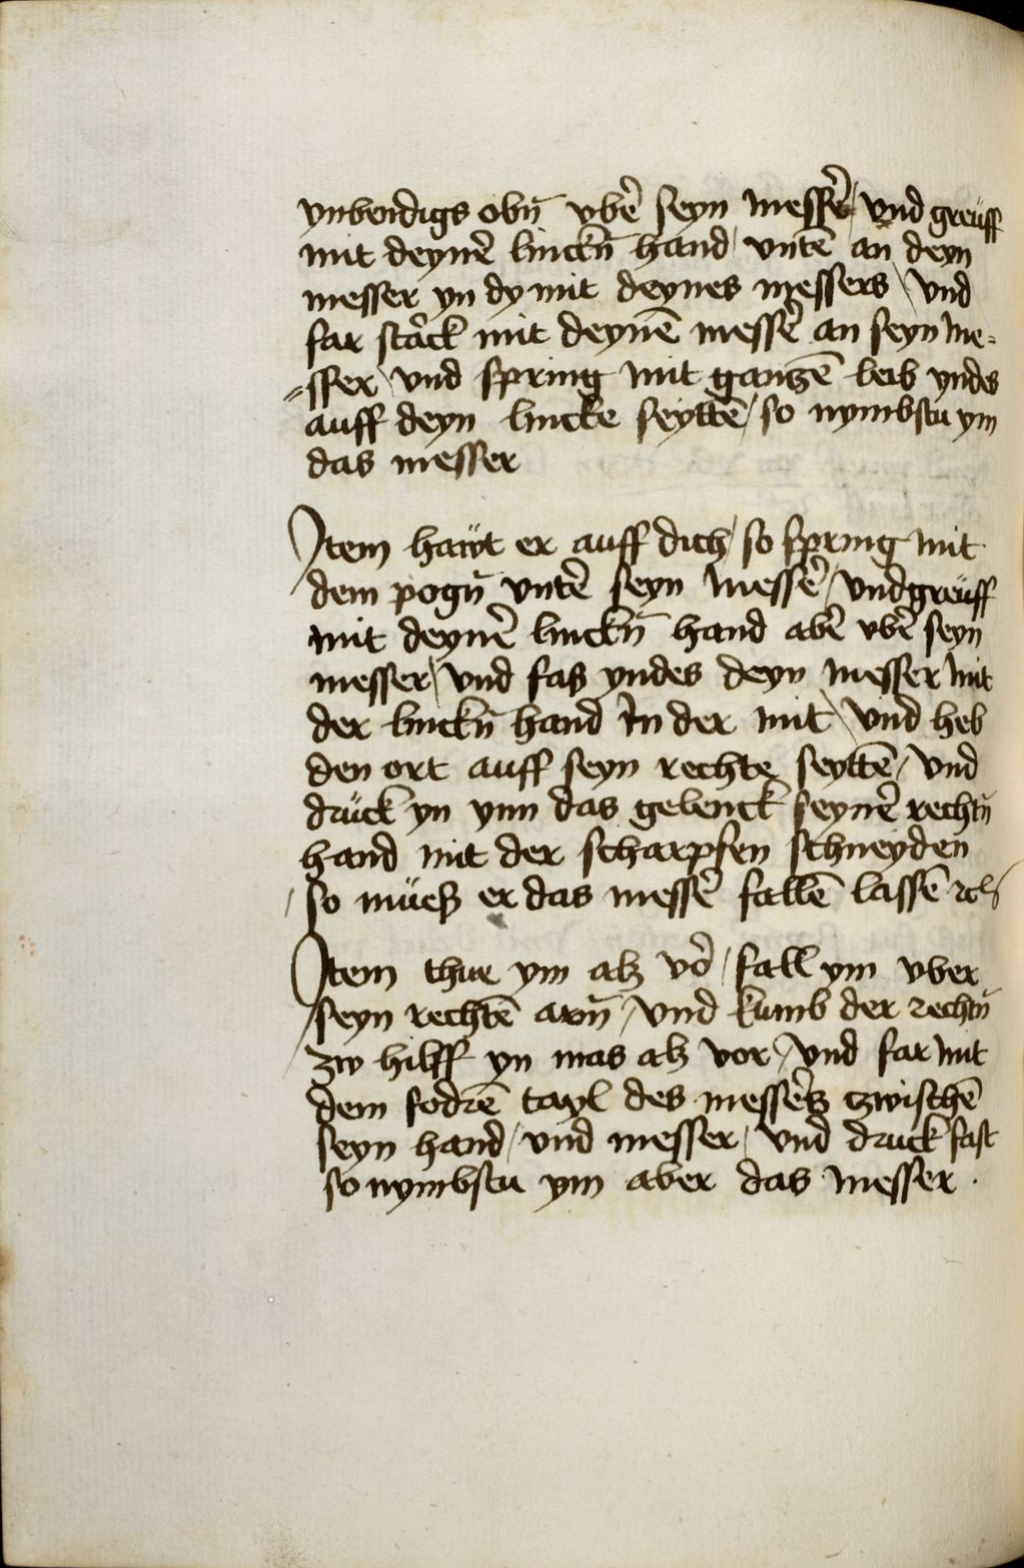 ynbendigs obñ vbẽ seyn messẽr / vnd greüff
mit deynẽ linckñ hand / vntẽ an deyn
messer yn dy mit deynes messers / vnd
far starck mit deynẽ messẽ an seyn me-
-sser / vnd spring mit ganczẽ leib yndes
auff deyn lincke seyttẽ / so nymbstu ym
das messer
Item hawt er auff dich / so spring mit
dem pogñ vntẽ seyn messẽ / vnd greüff
mit deynẽ linckñ hand abẽ vbẽ seyn
messer / vnd fas yndes deyn messer mit
der linckñ hand In der mit / vnd heb
den ort auff seyn rechte seyttẽ / vnd
drück yn ynn das gelenck seynẽ rechtñ
hand mit der scharpfen schneyden
/ so mües er das messẽ fallẽ lassẽ ꝛc
Item thue ym alß võ / fall ym vber
seyn rechtẽ arm̃ / vnd kumb der rechtñ
zw hilff yn mas alß vor / vnd far mit
dem fodrẽ tayl des messẽs zwischẽ
seyn hand / vnd messer / vnd druck fast
so nymbstu ym aber das messer .